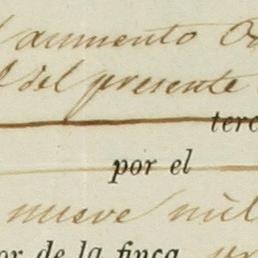 aumento
del presente
terc
por el
nueve mil
or de la finca